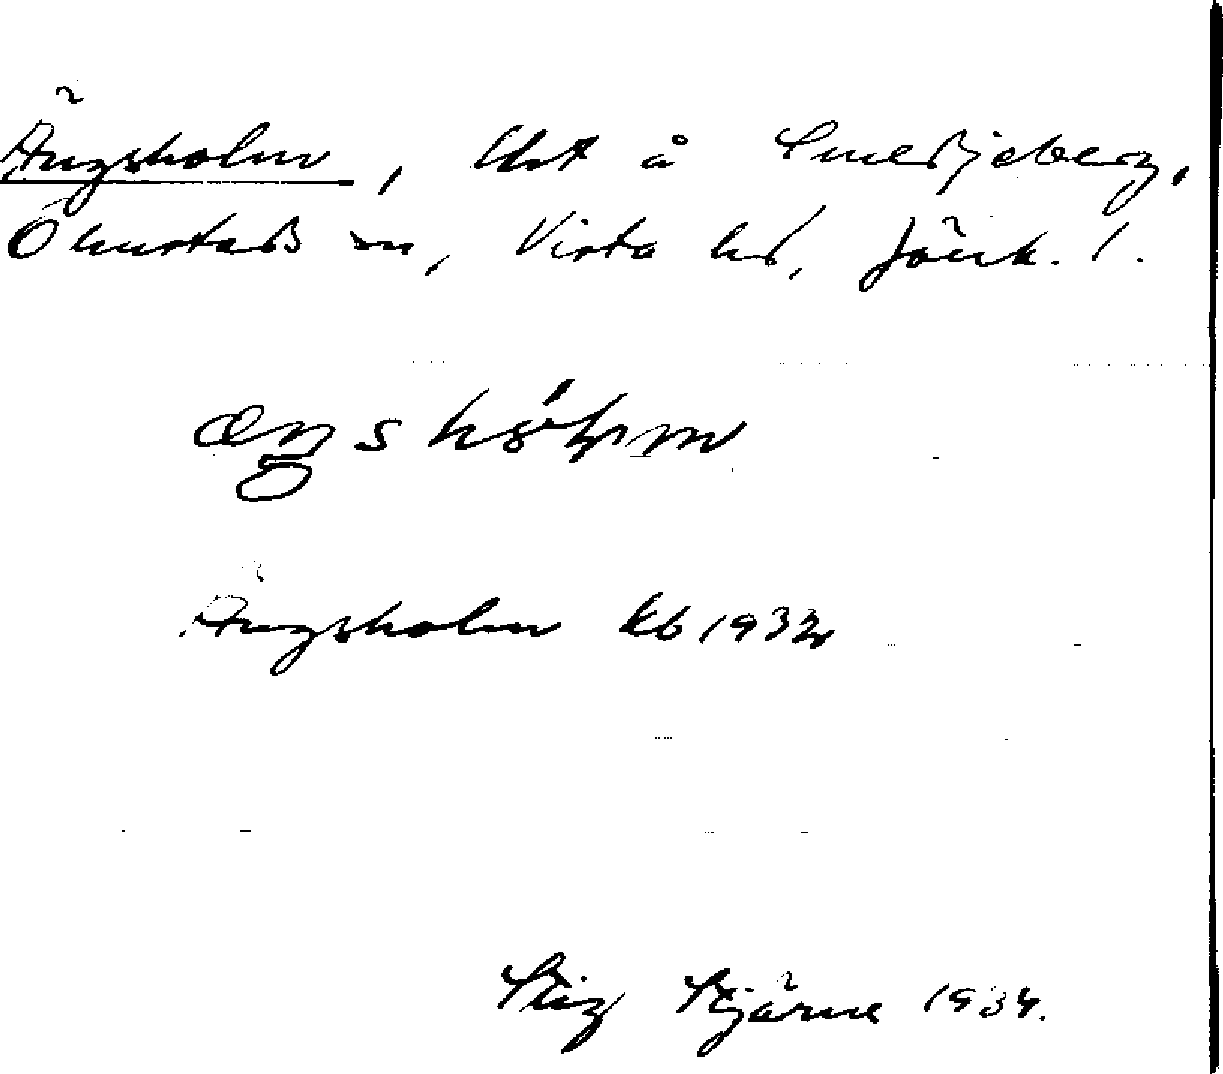 Ängsholm, lht å Smedjeberg,
Ölmstads sn, Vista hd, Jönk. l.
Ängsholm kb 1932
Stig Stjärne 1934.